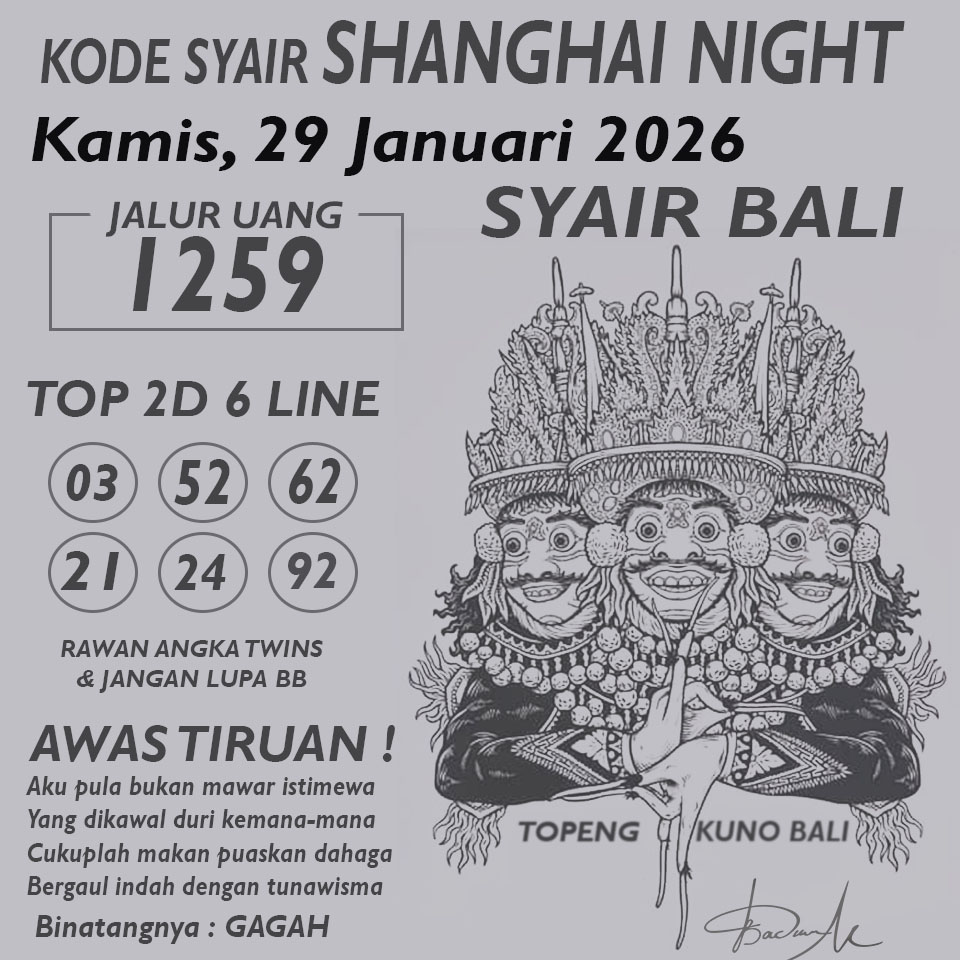 KODE SYAIR SHANGHAI NIGHT
Kamis, 29 Januari 2026
SYAIR BALI
JALUR UANG
1259
TOP 2D 6 LINE
03 52 62
21 24 92
RAWAN ANGKA TWINS
& JANGAN LUPA BB
AWAS TIRUAN !
Aku pula bukan mawar istimewa
Yang dikawal duri kemana-mana
Cukuplah makan puaskan dahaga
Bergaul indah dengan tunawisma
Binatangnya : GAGAH
TOPENG KUNO BALI